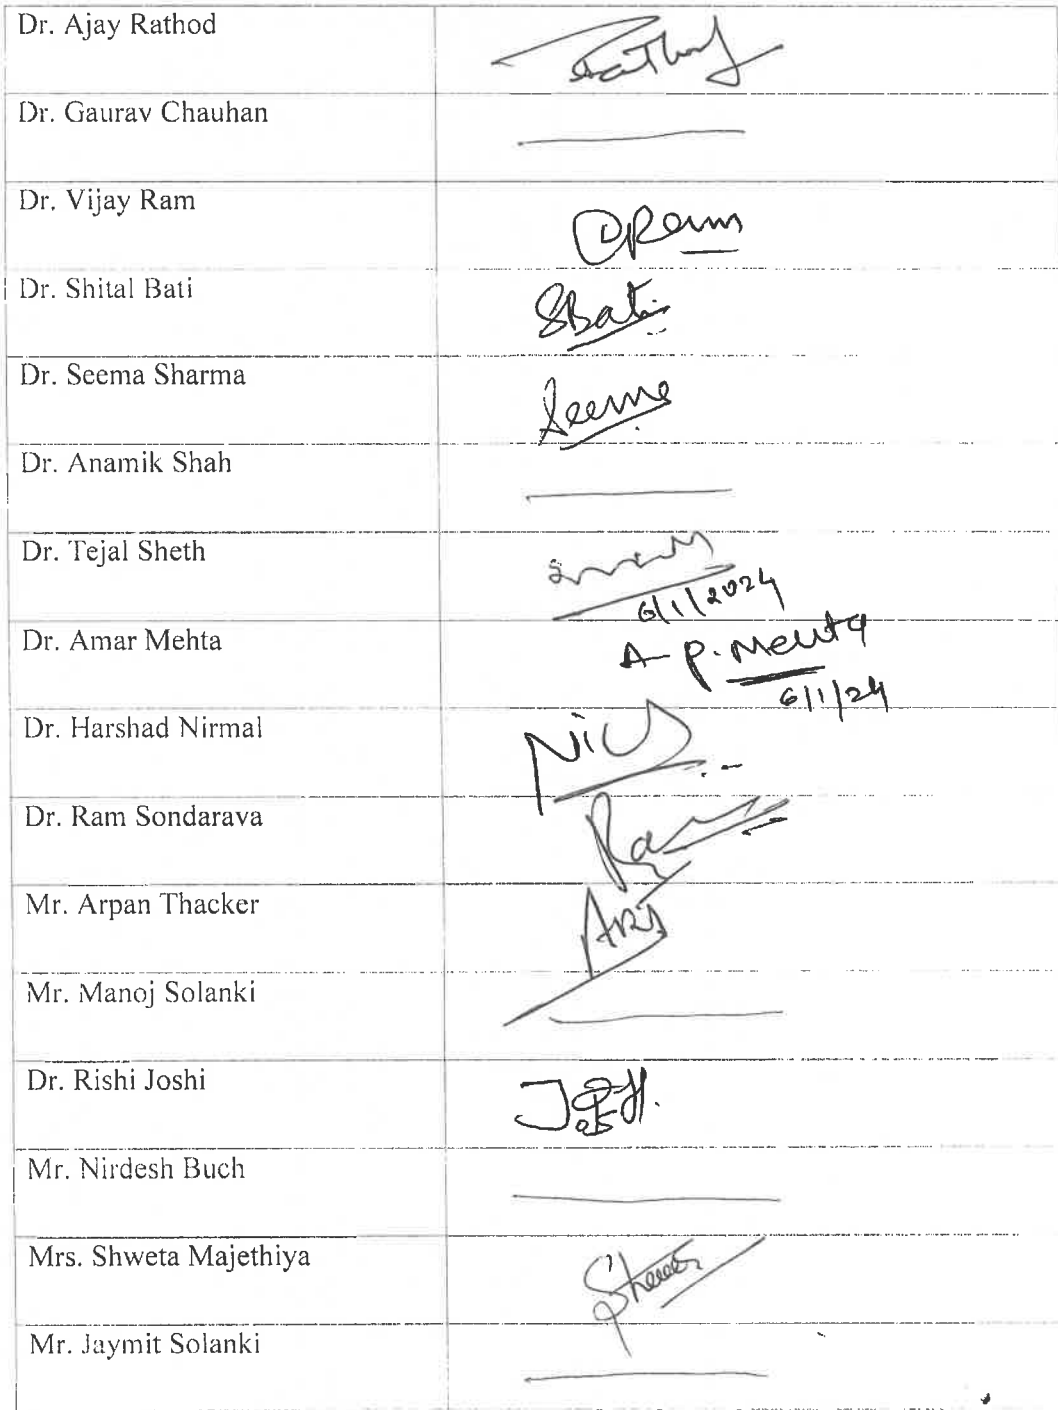 Dr. Ajay Rathod
Rathod
Dr. Gaurav Chauhan
Dr. Vijay Ram
Ram
Dr. Shital Bati
SBati
Dr. Seema Sharma
Seema
Dr. Anamik Shah
Dr. Tejal Sheth
6/1/2024
Dr. Amar Mehta
A P. Mehta
6/1/24
Dr. Harshad Nirmal
Dr. Ram Sondarava
Ram
Mr. Arpan Thacker
Mr. Manoj Solanki
Dr. Rishi Joshi
Mr. Nirdesh Buch
Mrs. Shweta Majethiya
Mr. Jaymit Solanki